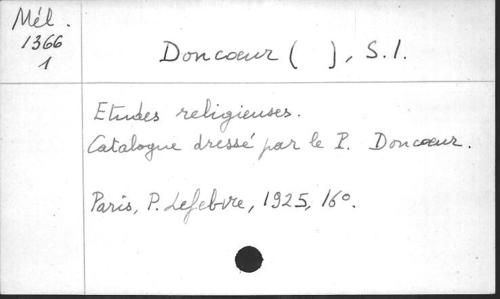 Mél.
1366
1
Doncœur ( ), S.I.
Etudes religieuses.
Catalogue dressé par le P. Doncœur.
Paris, P. Lefebvre, 1925, 16º.